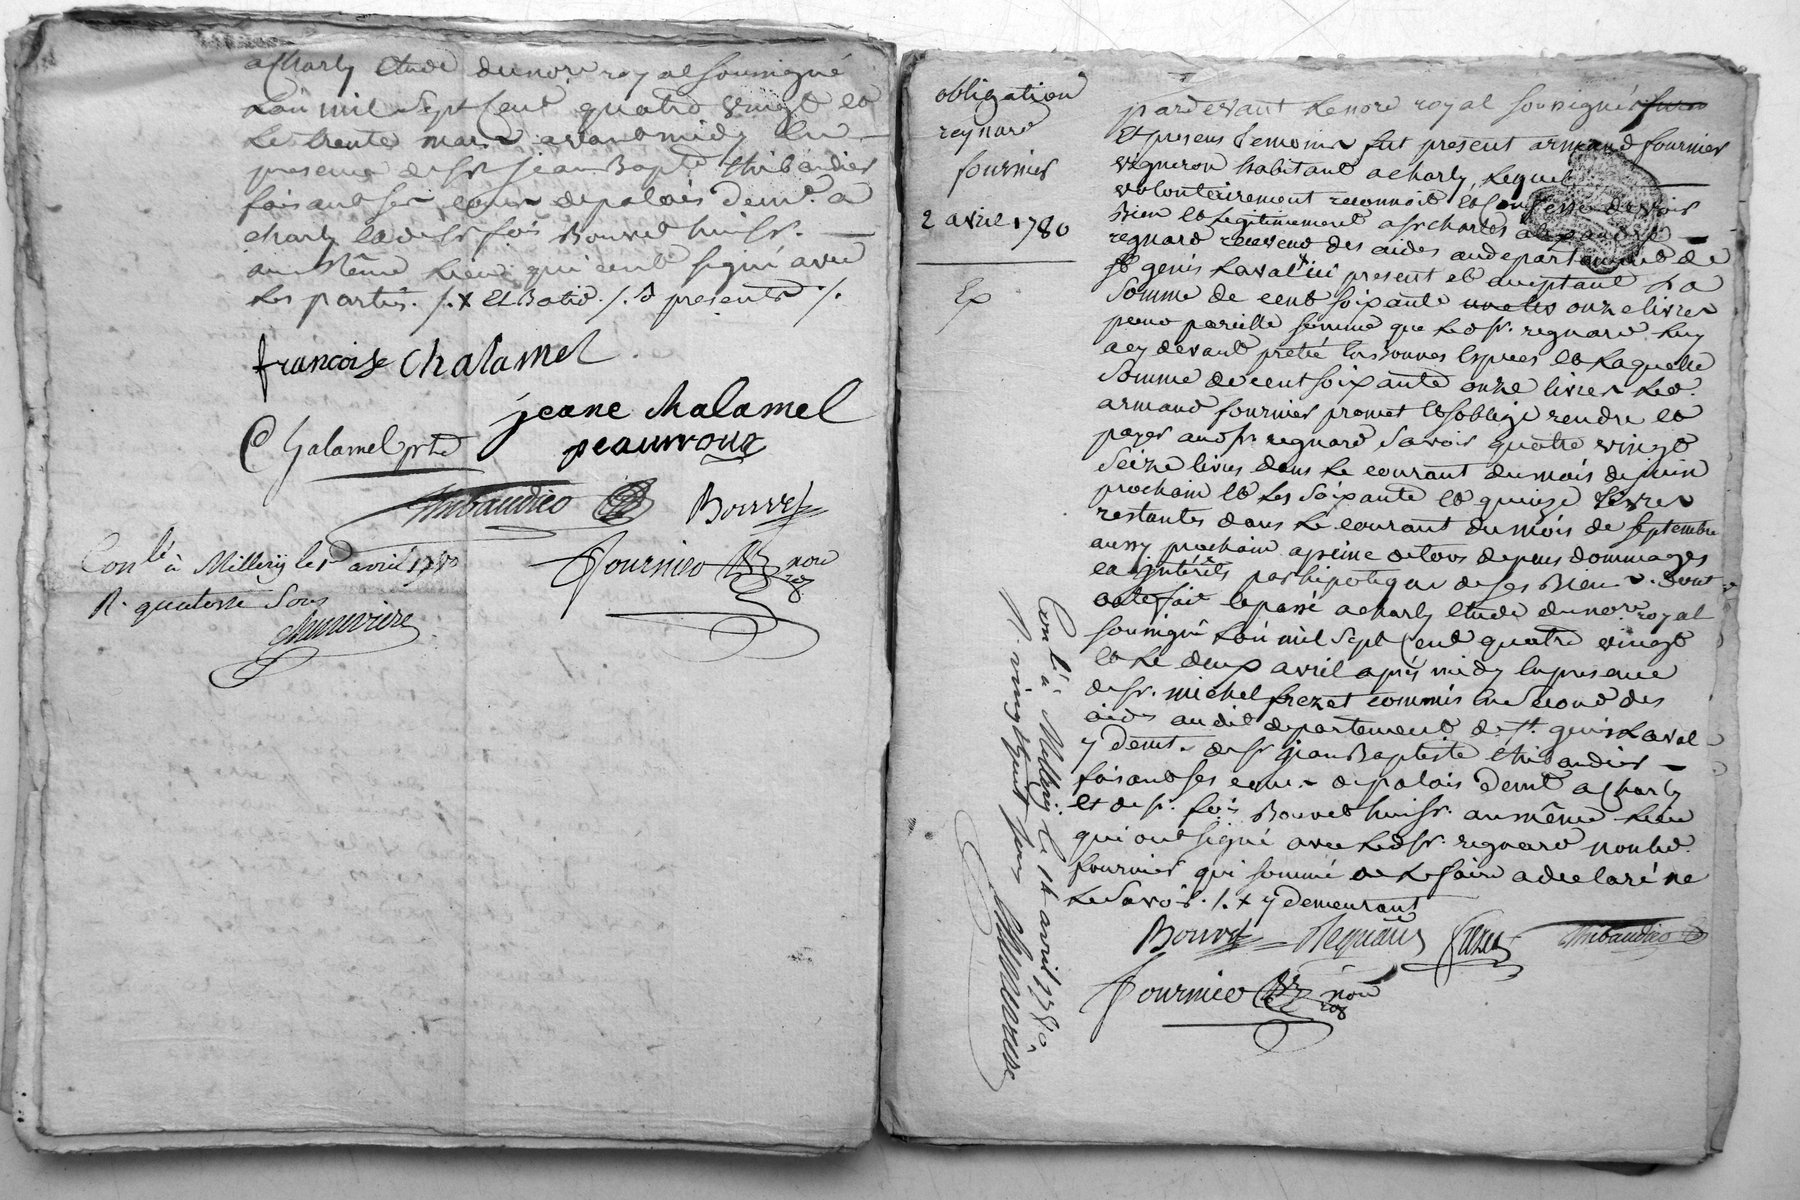 a Charly etude du nore royal soussigné
L'an mil sept cent quatre vingt et
Le trente mars avant midy En
presence de Sr jean Bapte thibaudier
faisant ses cours de palais demt. a
charly et de Sr fois Bouvet huissr.
au même Lieu qui ont signé avec
Les parties ./. x Et Batio ./. presents ./.
francoise Chalamel
jeane chalamel
Chalamel prtre
peauvroux
Thibaudier Bouvet
Fournier nore
roy
Conlé à Millery le 1er avril 1780
R. quatorze Sous
Chenevière
obligation
reynard
fournier
2 avril 1780
Ex
pardevant Le nore royal soussigné
Et presens temoins fut present armand fournier
vigneron habitant a charly, Lequel
volontairement reconnoit et confesse devoir
Bien et Legitimement a Sr charles
regnard receveur des aides au departement de
St genis Laval ici present et acceptant La
Somme de cent soixante une les onze livres
pour pareille somme que Led. Sr. regnard Luy
a cy devant preté En Bonnes Espèces et Laquelle
Somme de cent soixante onze livres Led.
armand fournier promet et s'oblige rendre et
payer aud. Sr. regnard Savoir quatre vingt
Seize livres dans Le courant du mois de juin
prochain et Les Soixante et quinze Livres
restantes dans Le courant du mois de Septembre
aussy prochain a peine de tous depens dommages
et intérêts par hipoteque de ses Biens. Dont
acte fait et passé a charly etude du nore. royal
soussigné L'an mil Sept Cent quatre vingt
et Le deux avril après midy En presence
de Sr. michel frezet commis En Second des
aides audit departement de St. genis Laval
y demt. de Sr jean Baptiste thibaudier
faisant ses cours de palais demt a Charly
et de Sr. fois Bouvet huissr. au même Lieu
qui ont signé avec Led. Sr. regnard non Led.
fournier qui sommé de Le faire a declaré ne
Le Savoir ./. x y demeurant
Bouvet Regnard frezet Thibaudier
Fournier nore
roy
Conlé à Millery le 14 avril 1780
R. vingt huit sous Chenevière